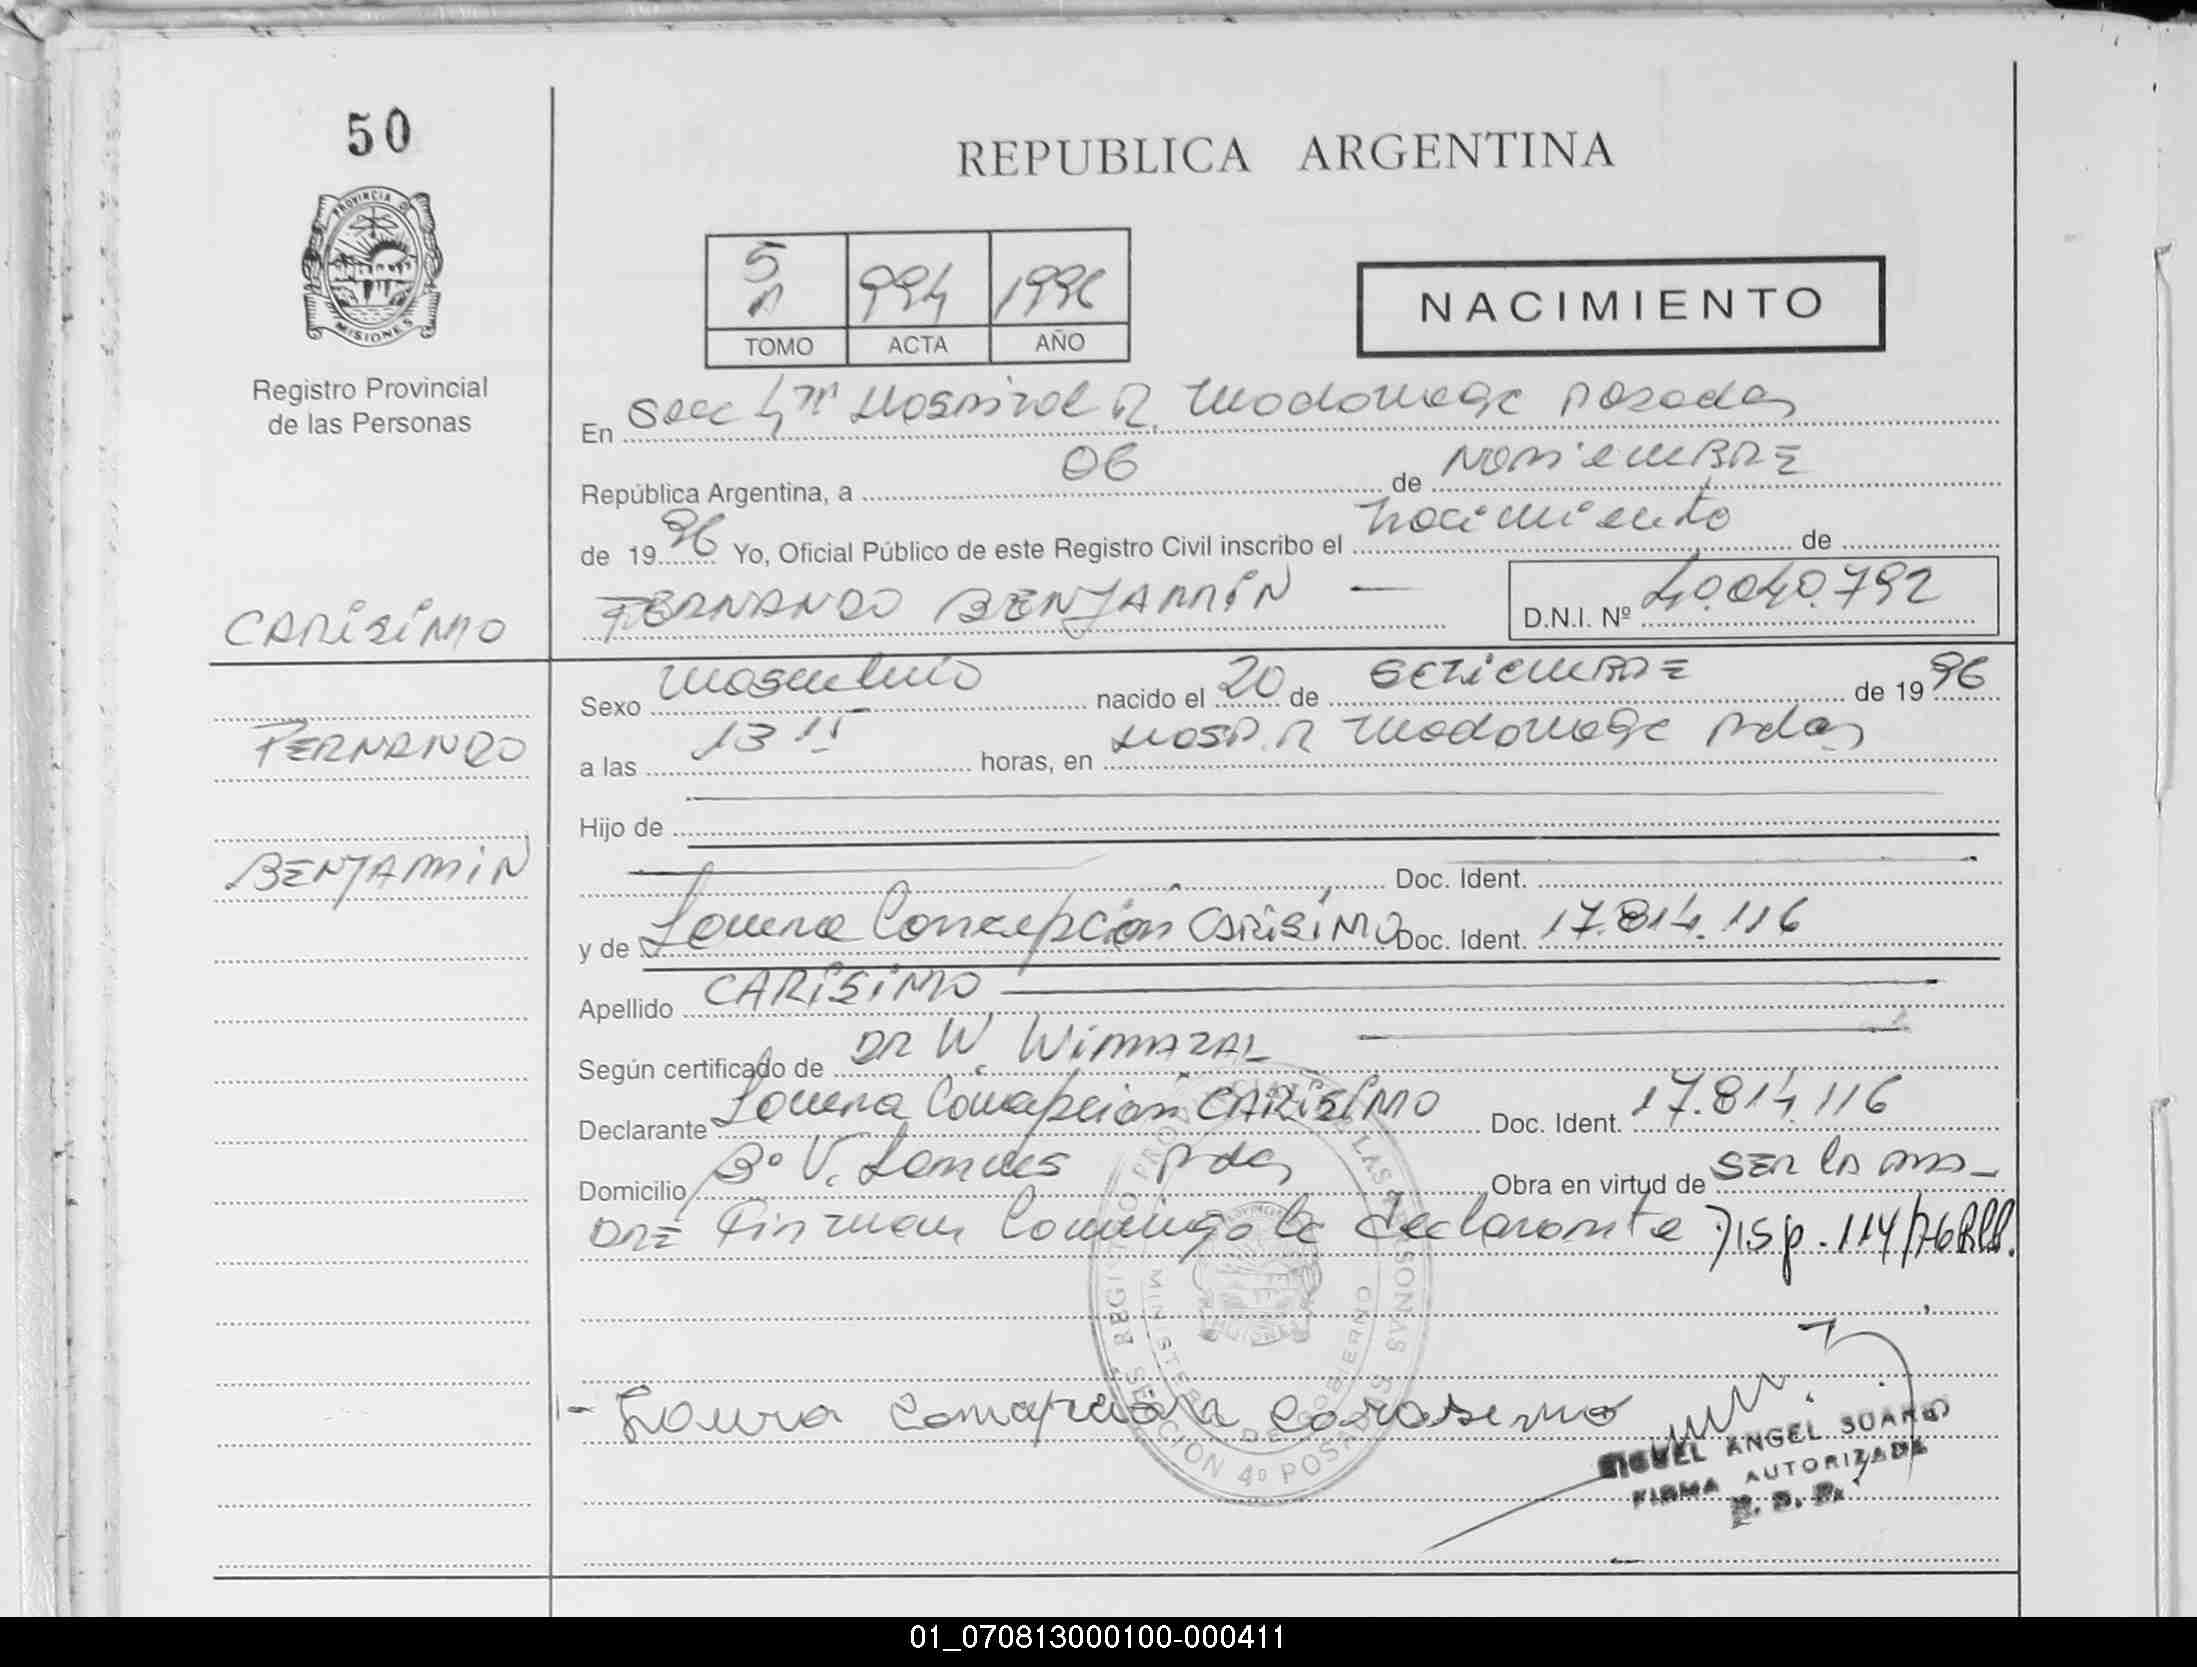 50
REPUBLICA ARGENTINA
PROVINCIA D
MISIONES
Registro Provincial
de las Personas
5
994
1996
TOMO
ACTA
AÑO
NACIMIENTO
En Secc 4ta Hospital R. Madariaga Posadas
República Argentina, a 06 de NOVIEMBRE
de 1996 Yo, Oficial Público de este Registro Civil inscribo el nacimiento de
FERNANDO BENJAMIN
D.N.I. Nº 40.040.792
CARISIMO
FERNANDO
BENJAMIN
Sexo masculino nacido el 20 de SETIEMBRE de 1996
a las 13 15 horas, en HOSP. R Madariaga Pdas
Hijo de
Doc. Ident.
y de Concepción CARISIMO Doc. Ident. 17.814.116
Apellido CARISIMO
Según certificado de DR W.
Declarante Concepción CARISIMO Doc. Ident. 17.814.116
Domicilio Bº V. Pdas Obra en virtud de SER la MA-
DRE Firman conmigo la declarante Disp. 114/76
REGISTRO PROVINCIAL DE LAS PERSONAS
MINISTERIO DE GOBIERNO
SECCION 4º POSADAS
MIGUEL ANGEL SUAREZ
FIRMA AUTORIZADA
R. P. P.
01_070813000100-000411